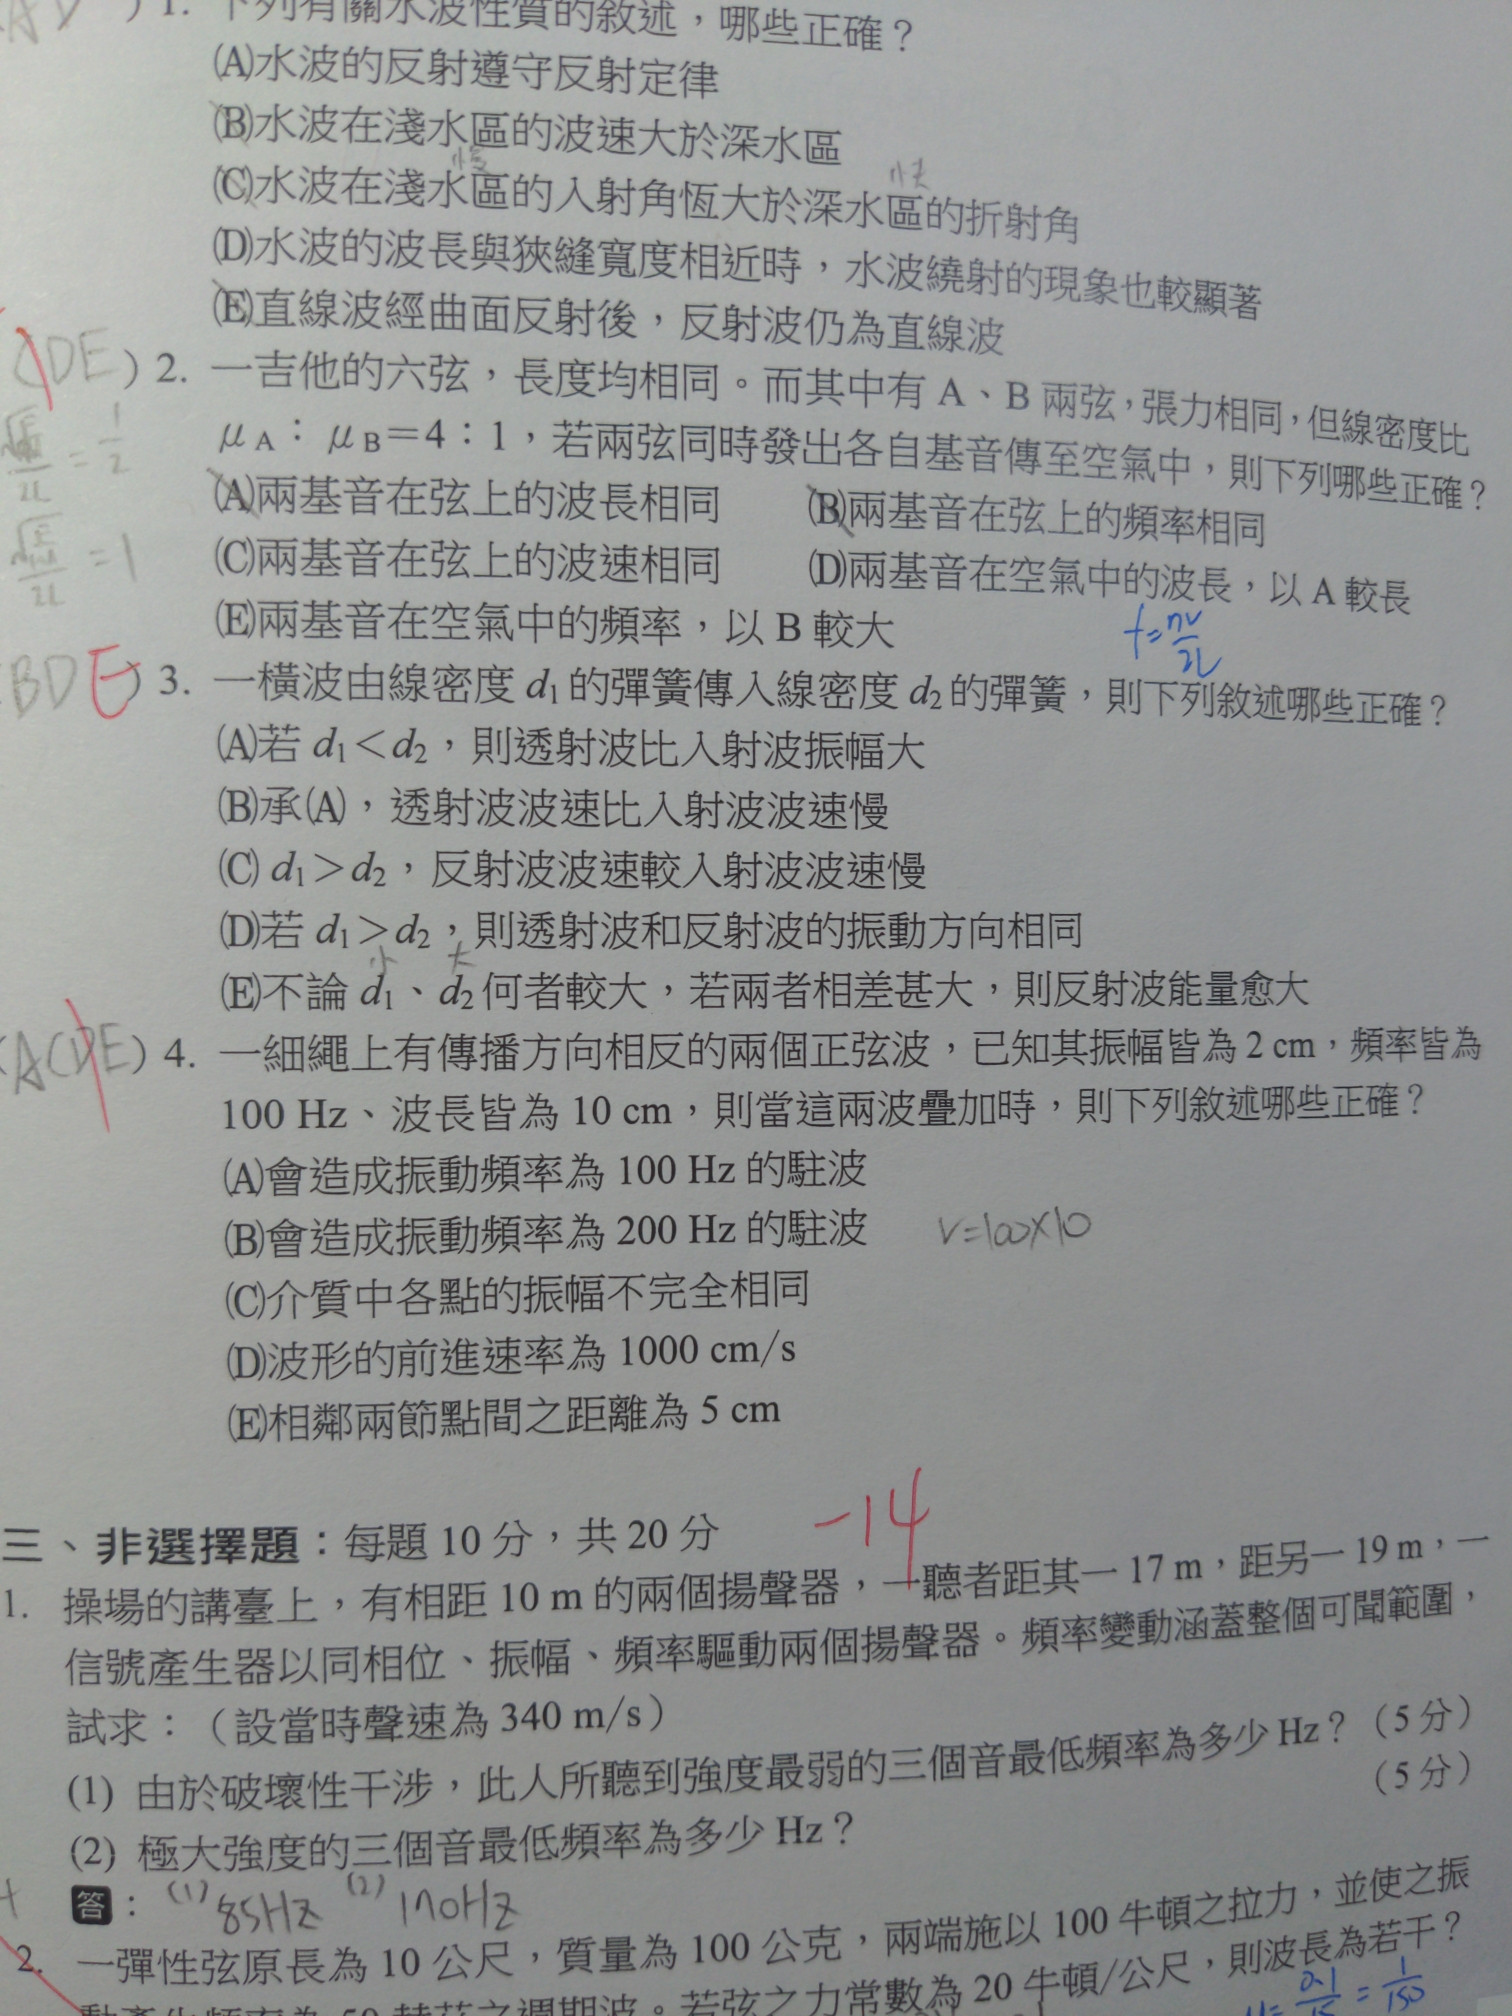 1. 下列有關水波性質的敘述，哪些正確？
(A)水波的反射遵守反射定律
(B)水波在淺水區的波速大於深水區
慢 快
(C)水波在淺水區的入射角恆大於深水區的折射角
(D)水波的波長與狹縫寬度相近時，水波繞射的現象也較顯著
(E)直線波經曲面反射後，反射波仍為直線波
CDE ) 2. 一吉他的六弦，長度均相同。而其中有 A、B 兩弦，張力相同，但線密度比
μA： μB＝4：1，若兩弦同時發出各自基音傳至空氣中，則下列哪些正確？
(A)兩基音在弦上的波長相同 (B)兩基音在弦上的頻率相同
(C)兩基音在弦上的波速相同 (D)兩基音在空氣中的波長，以 A 較長
(E)兩基音在空氣中的頻率，以 B 較大
f=nv/2L
BDE ) 3. 一橫波由線密度 d1 的彈簧傳入線密度 d2 的彈簧，則下列敘述哪些正確？
(A)若 d1＜d2，則透射波比入射波振幅大
(B)承(A)，透射波波速比入射波波速慢
(C) d1＞d2，反射波波速較入射波波速慢
(D)若 d1＞d2，則透射波和反射波的振動方向相同
小 大
(E)不論 d1、d2 何者較大，若兩者相差甚大，則反射波能量愈大
(ACDE) 4. 一細繩上有傳播方向相反的兩個正弦波，已知其振幅皆為 2 cm，頻率皆為
100 Hz、波長皆為 10 cm，則當這兩波疊加時，則下列敘述哪些正確？
(A)會造成振動頻率為 100 Hz 的駐波
(B)會造成振動頻率為 200 Hz 的駐波 V=100×10
(C)介質中各點的振幅不完全相同
(D)波形的前進速率為 1000 cm/s
(E)相鄰兩節點間之距離為 5 cm
-14
三、非選擇題：每題 10 分，共 20 分
1. 操場的講臺上，有相距 10 m 的兩個揚聲器，一聽者距其一 17 m，距另一 19 m，一
信號產生器以同相位、振幅、頻率驅動兩個揚聲器。頻率變動涵蓋整個可聞範圍，
試求：（設當時聲速為 340 m/s）
(1) 由於破壞性干涉，此人所聽到強度最弱的三個音最低頻率為多少 Hz？（5 分）
(2) 極大強度的三個音最低頻率為多少 Hz？ （5 分）
答：(1) 85Hz (2) 170Hz
2. 一彈性弦原長為 10 公尺，質量為 100 公克，兩端施以 100 牛頓之拉力，並使之振
動產生頻率為 50 赫茲之週期波。若弦之力常數為 20 牛頓/公尺，則波長為若干？